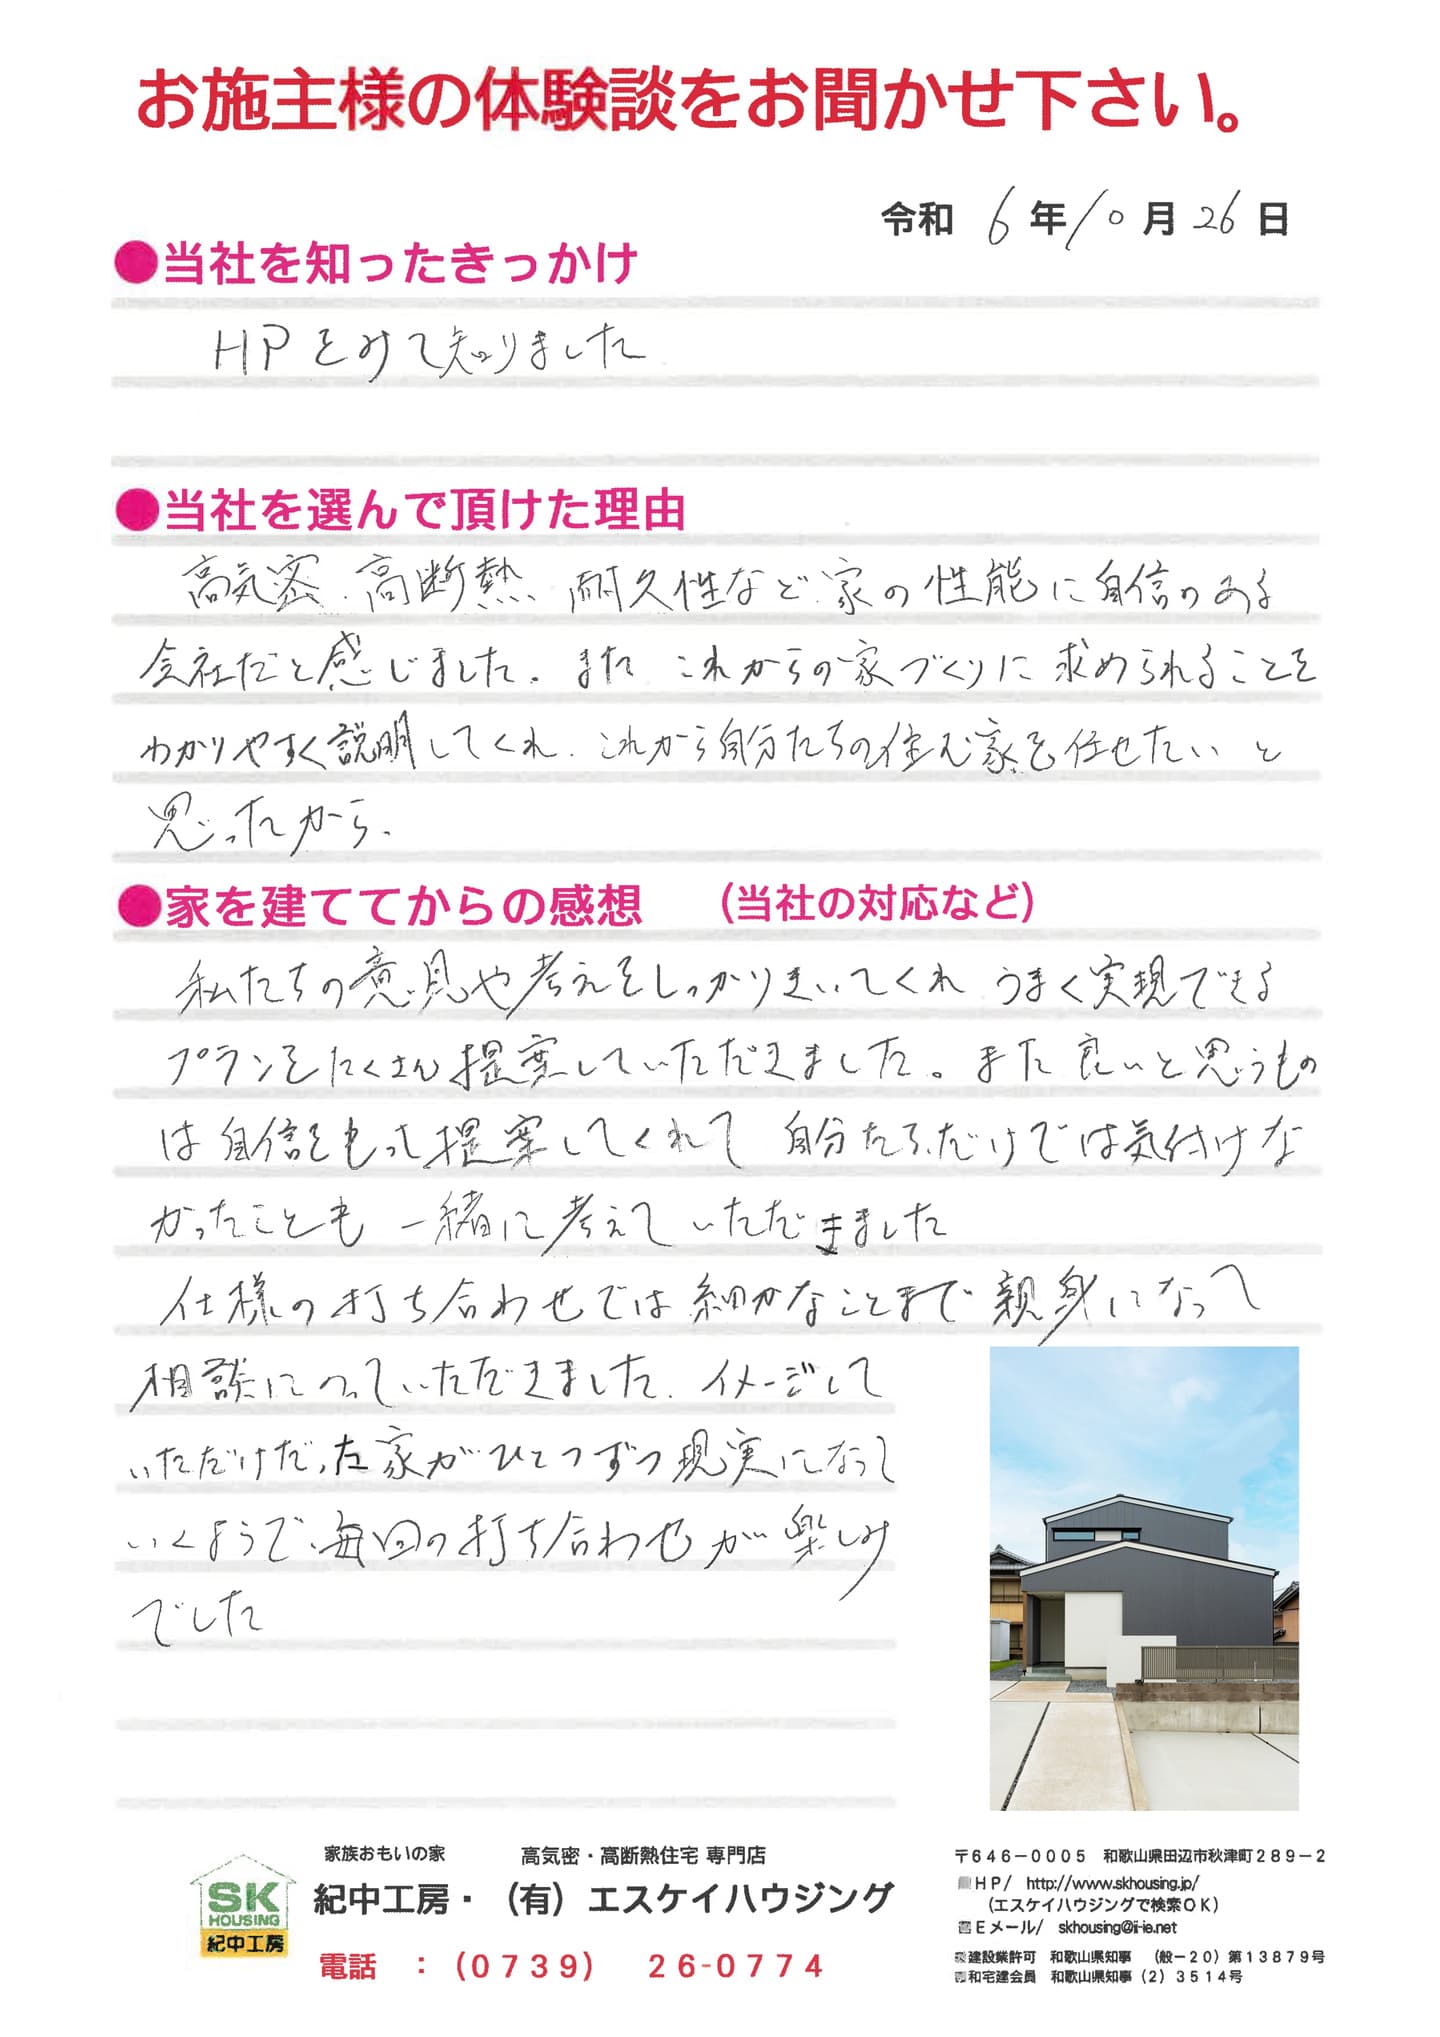 お施主様の体験談をお聞かせ下さい。
令和 6年10月26日
●当社を知ったきっかけ
HPをみて知りました
●当社を選んで頂けた理由
高気密、高断熱、耐久性など、家の性能に自信のある
会社だと感じました。また これからの家づくりに求められることを
わかりやすく説明してくれ、これから自分たちの住む家を任せたいと
思ったから、
●家を建ててからの感想 (当社の対応など)
私たちの意見や考えをしっかりきいてくれ うまく実現できる
プランをたくさん提案していただきました。また 良いと思うもの
は自信をもって提案してくれて 自分たちだけでは気付けな
かったことも 一緒に考えて いただきました
仕様の打ち合わせでは細かなことまで親身になって
相談にのっていただきました、イメージして
いただけだった家がひとつずつ現実になって
いくようで、毎回の打ち合わせが楽しみ
でした
家族おもいの家 高気密・高断熱住宅 専門店
SK
HOUSING
紀中工房
紀中工房・(有)エスケイハウジング
電話 :(0739) 26-0774
〒646-0005 和歌山県田辺市秋津町289-2
HP/ http://www.skhousing.jp/
(エスケイハウジングで検索OK)
Eメール/ skhousing@ii-ie.net
建設業許可 和歌山県知事 (般-20)第13879号
和宅建会員 和歌山県知事(2)3514号